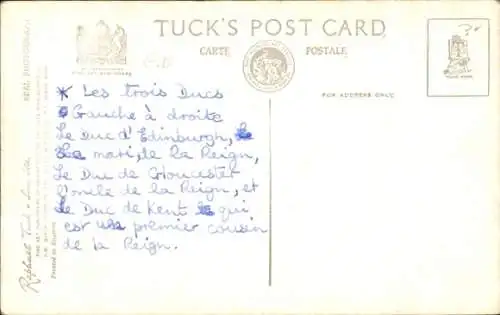 TUCK'S POST CARD
CARTE POSTALE
FOR ADDRESS ONLY
REAL PHOTOGRAPH
Raphael Tuck & Sons Ltd
* Les trois Ducs
Gauche à droite
Le Duc d'Edinburgh,
mari, de la Reign,
Le Duc de Gloucester
l'oncle de la Reign, et
Le Duc de Kent qui
est un premier cousin
de la Reign.